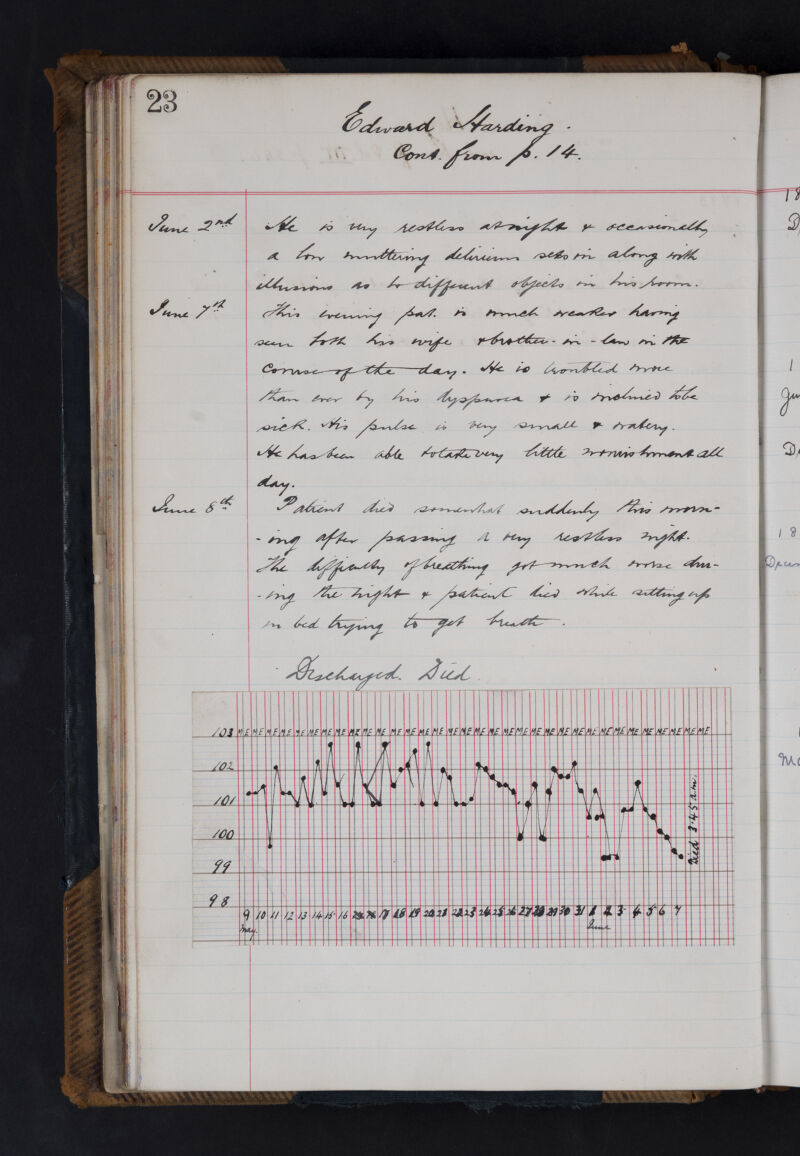 23
Edward Harding.
Cont. from p. 14.
June 2nd He is very restless at night & occasionally
a low muttering delirium sets in along with
illusions as to different objects in his room.
June 7th This evening pat. is much weaker having
seen both his wife & brother-in-law in the
course of the day. He is troubled more
than ever by his dyspnoea & is inclined to be
sick. His pulse is very small & watery.
He has been able to take very little nourishment all
day.
June 8th Patient died somewhat suddenly this morn-
-ing after passing a very restless night.
The difficulty of breathing got much worse dur-
-ing the night & patient died while sitting up
in bed trying to get breath.
Discharged. Died.
103 M E M E M E M E M E M E M E M E M E M E M E M E M E M E M E M E M E M E M E M E M E M E M E M E M E M E M E M E M E M E M E M E M E
102
101
100
99
98
9 10 11 12 13 14 15 16 17 18 19 20 21 22 23 24 25 26 27 28 29 30 31 1 2 3 4 5 6 7
May.
June
Died 8.45 a.m.
18
D
1
Ju
D
18
Decem
Ma